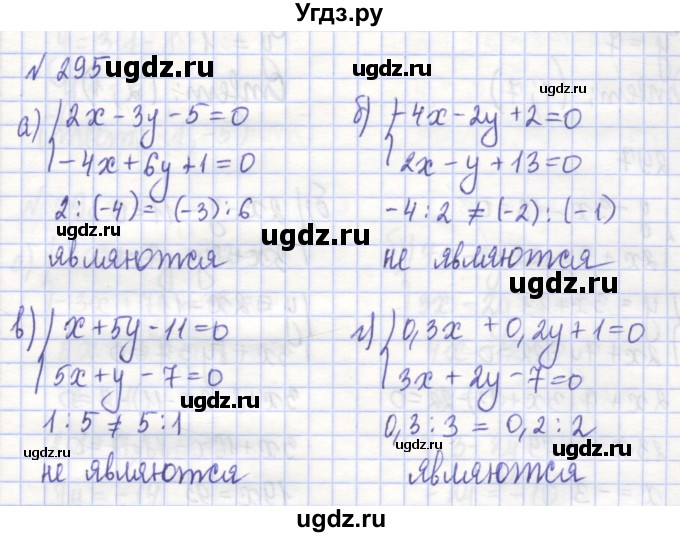 Угдз.ру
N 295
ugdz.ru
а) 2x - 3y - 5 = 0
-4x + 6y + 1 = 0
2 : (-4) = (-3) : 6
являются
ugdz.ru
ugdz.ru
б) -4x - 2y + 2 = 0
2x - y + 13 = 0
ugdz.ru
-4 : 2 ≠ (-2) : (-1)
ugdz.ru
не являются
ugdz.ru
в) x + 5y - 11 = 0
5x + y - 7 = 0
ugdz.ru
1 : 5 ≠ 5 : 1
ugdz.ru
не являются
г) 0,3x + 0,2y + 1 = 0
ugdz.ru
3x + 2y - 7 = 0
0,3 : 3 = 0,2 : 2
ugdz.ru
являются
ugdz.ru